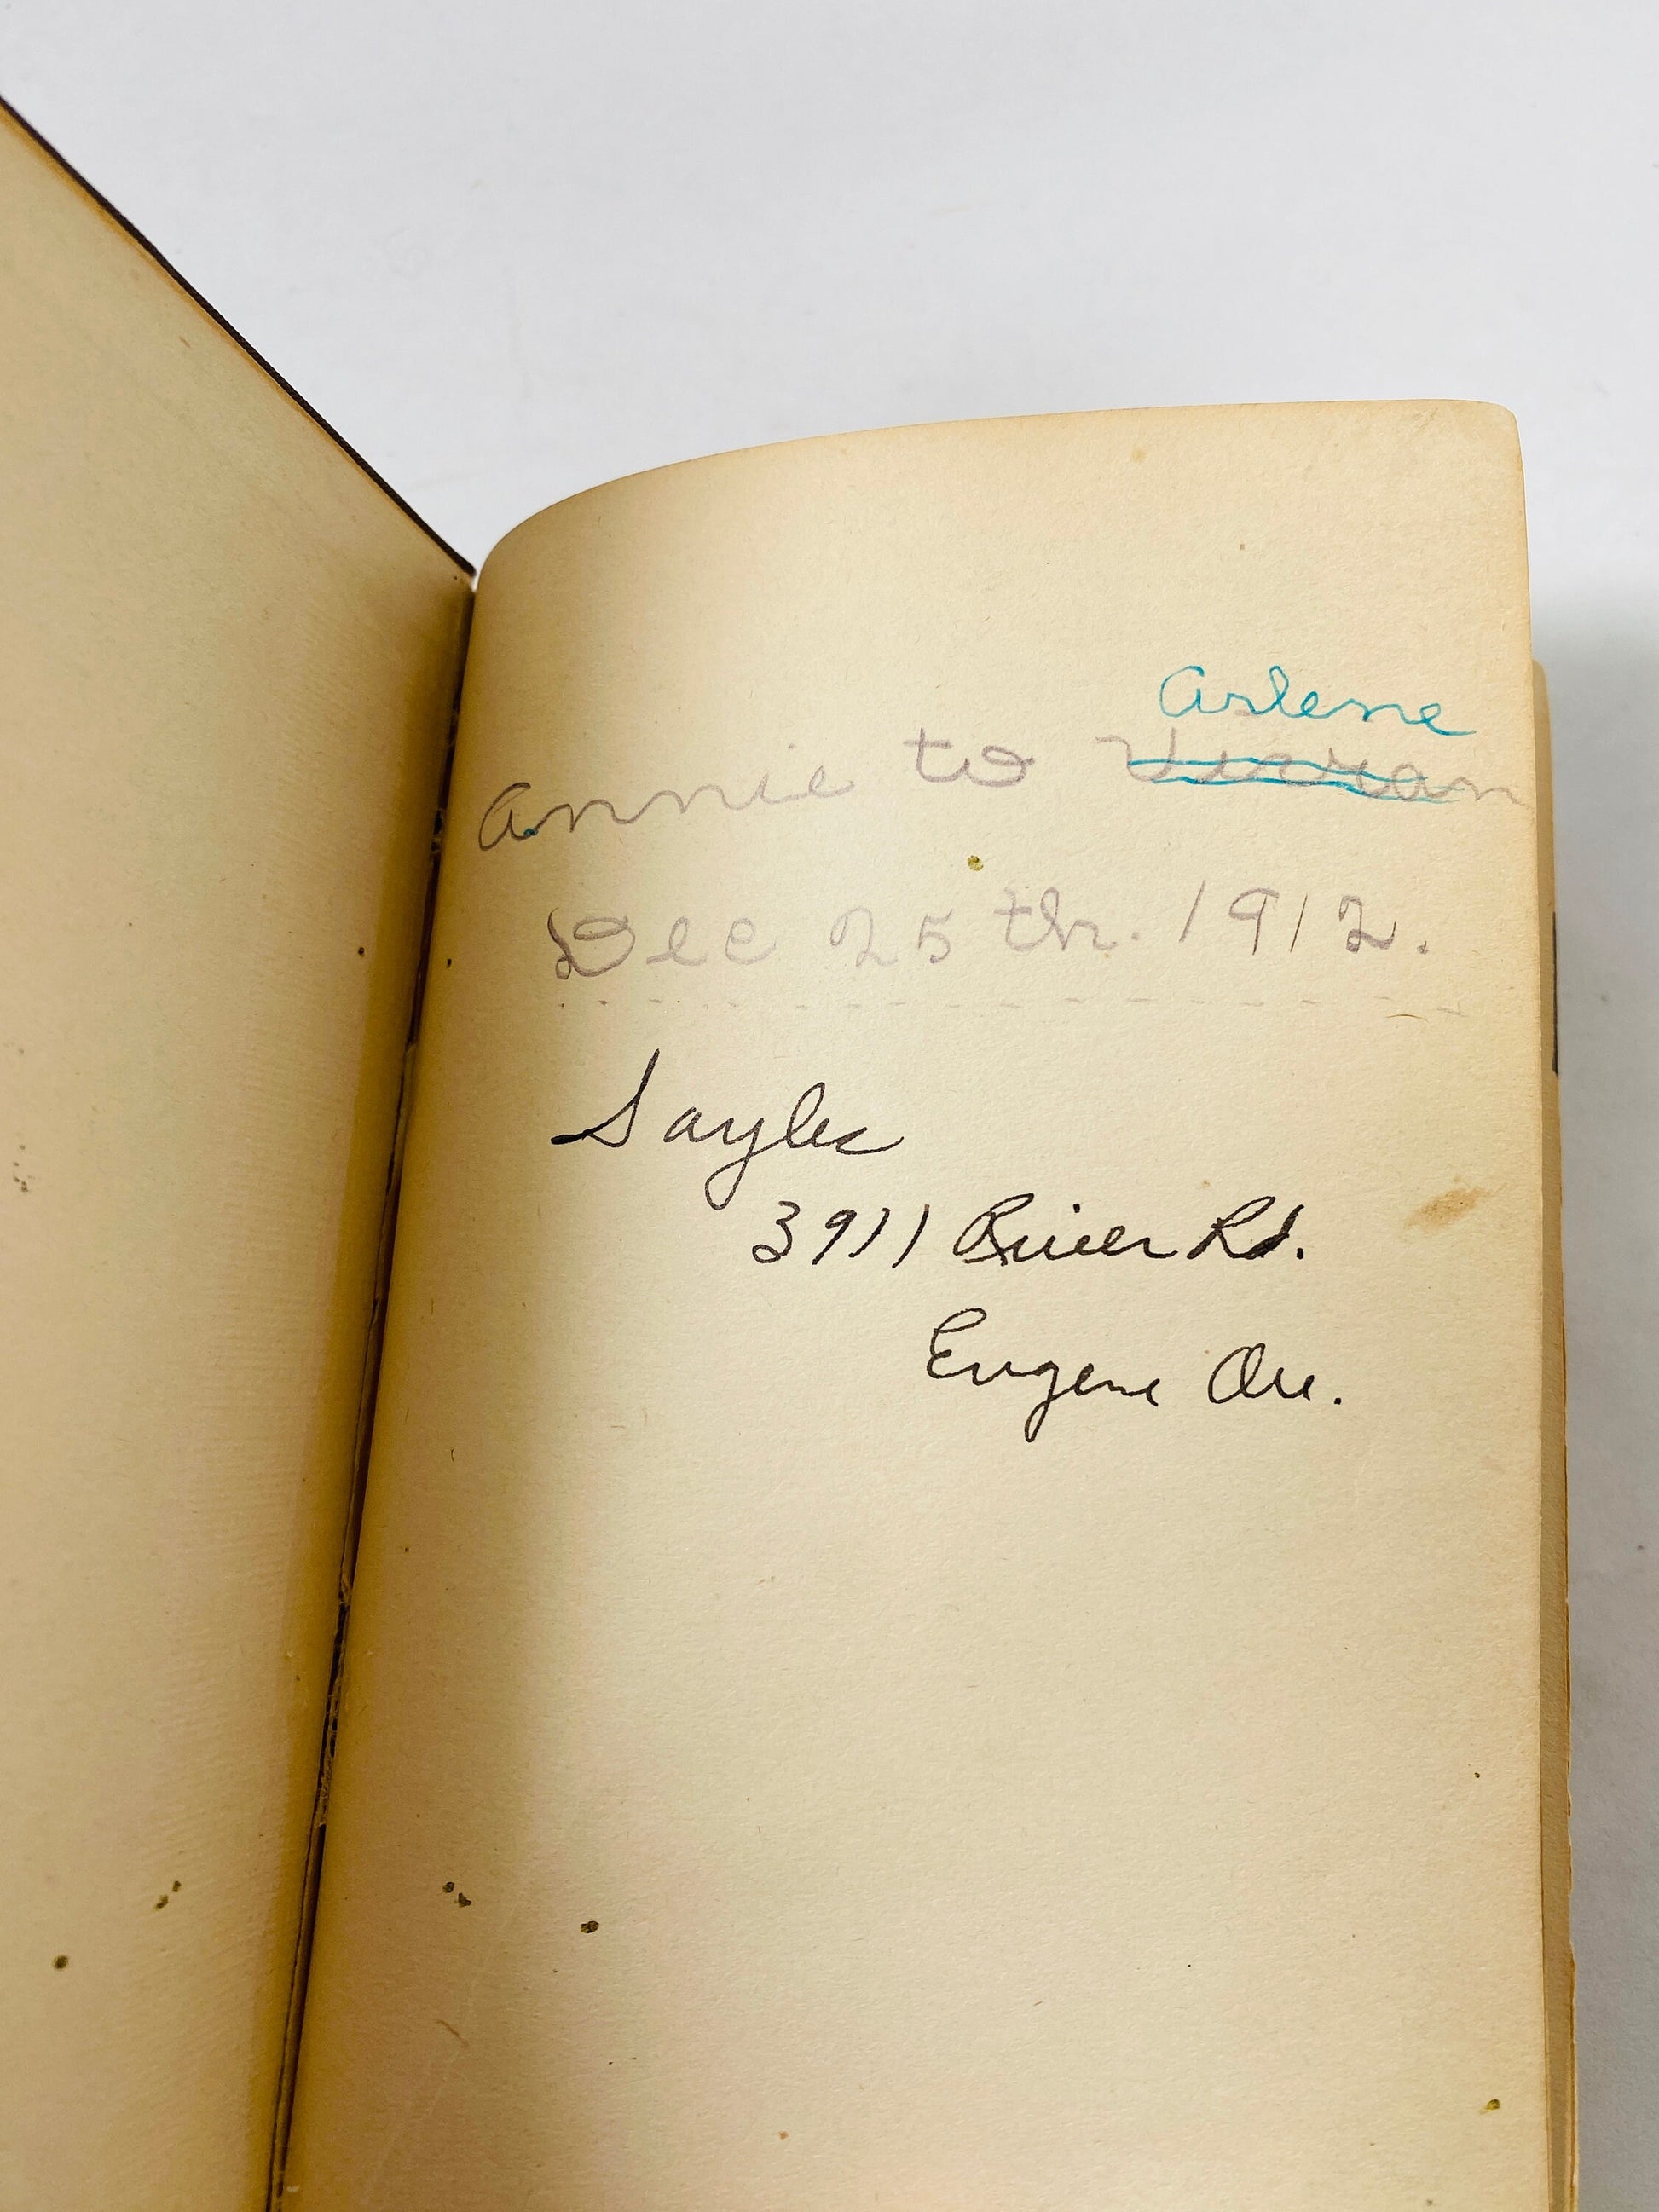 Arlene
Annie to Vivian
Dec 25th. 1912.
Sayles
3911 River Rd.
Eugene Ore.